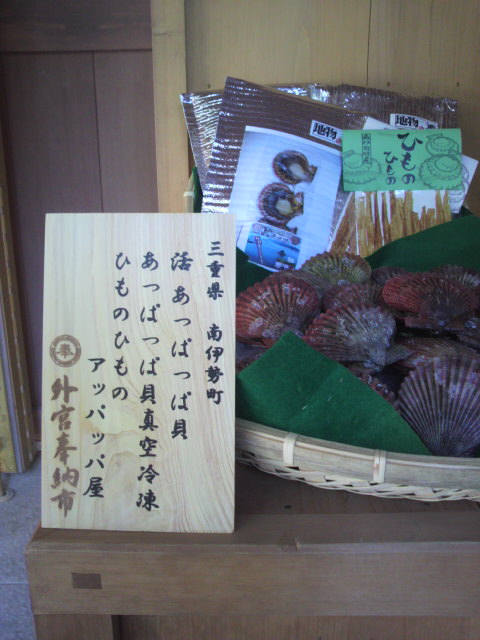 三重県 南伊勢町
活 あっぱっぱ貝
あっぱっぱ貝真空冷凍
ひものひもの
アッパッパ屋
奉
外宮奉納市
地物
地物
ひもの
ひもの